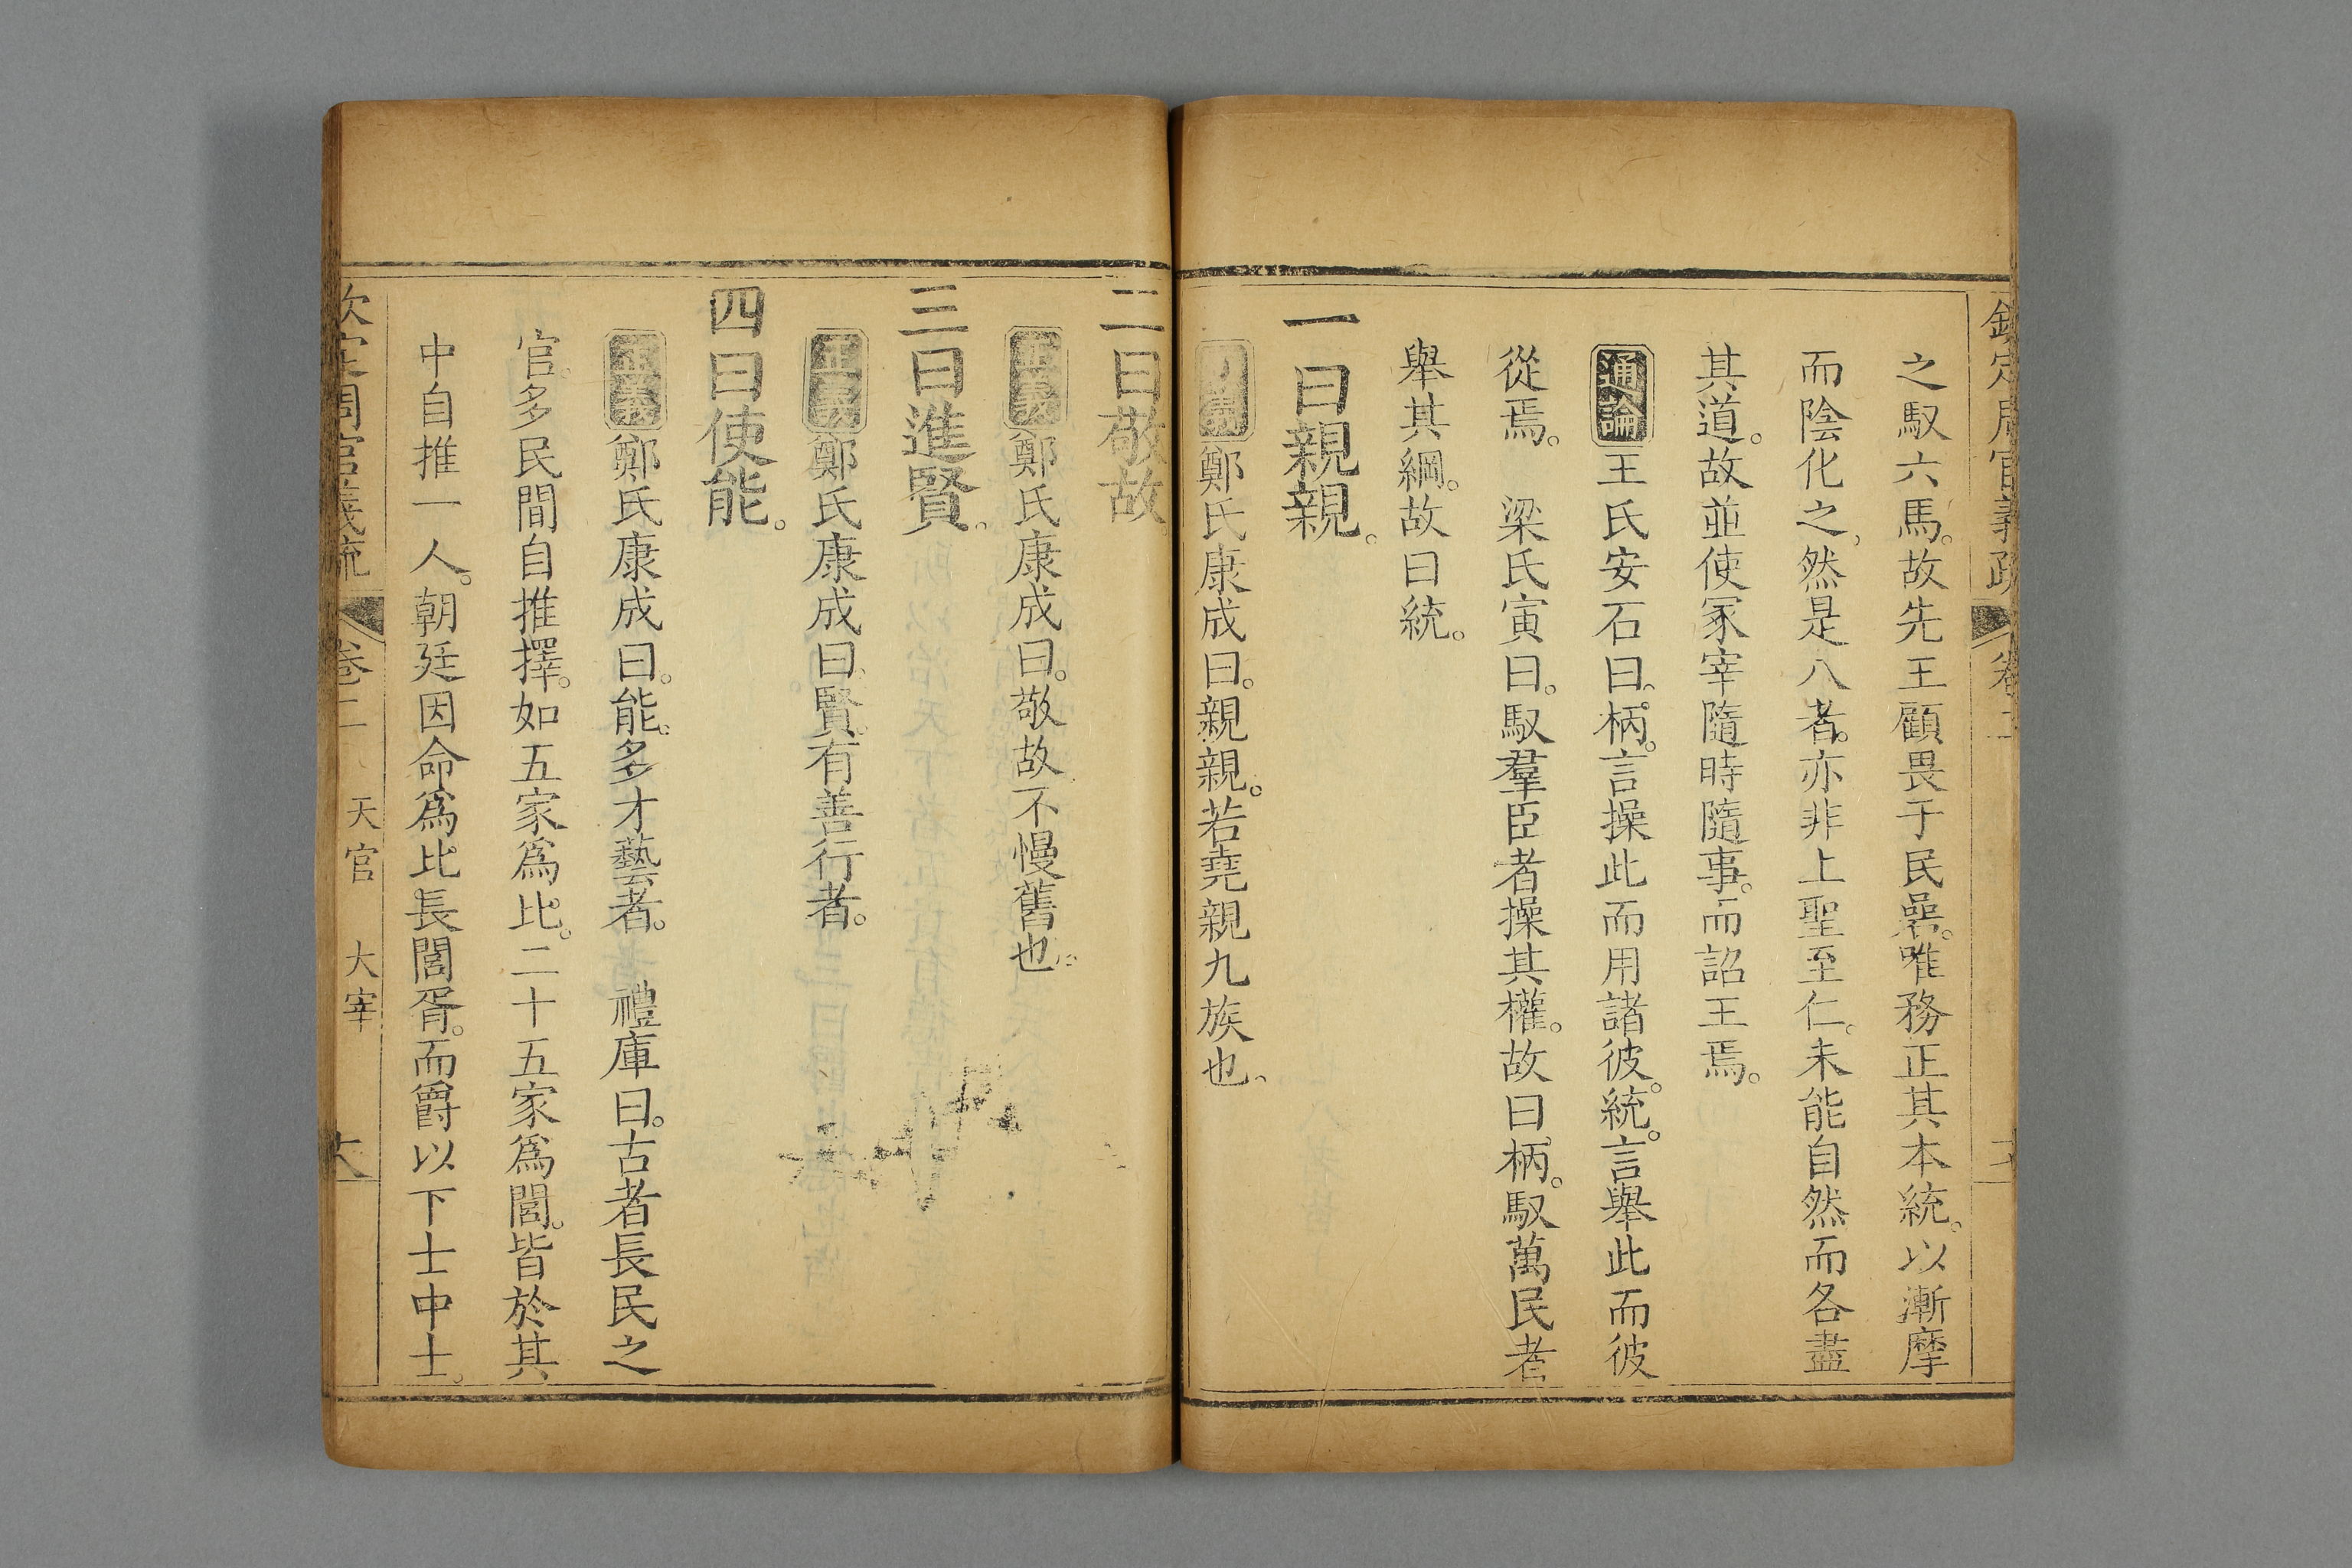 之馭六馬。故先王顧畏于民碞。唯務正其本統。以漸摩
而陰化之。然是八者。亦非上聖至仁。未能自然而各盡
其道。故並使冢宰隨時隨事。而詔王焉。
通論 王氏安石曰。柄。言操此而用諸彼。統。言舉此而彼
從焉。 梁氏寅曰。馭羣臣者操其權。故曰柄。馭萬民者
舉其綱。故曰統。
一曰親親。
鄭氏康成曰。親親。若堯親九族也。
二曰敬故
正義 鄭氏康成曰。敬故。不慢舊也。
三曰進賢。
正義 鄭氏康成曰。賢。有善行者。
四曰使能。
正義 鄭氏康成曰。能。多才藝者。 禮庫曰。古者長民之
官。多民間自推擇。如五家爲比。二十五家爲閭。皆於其
中自推一人。朝廷因命爲比長閭胥。而爵以下士中士。
欽定周官義疏 卷二 天官 大宰